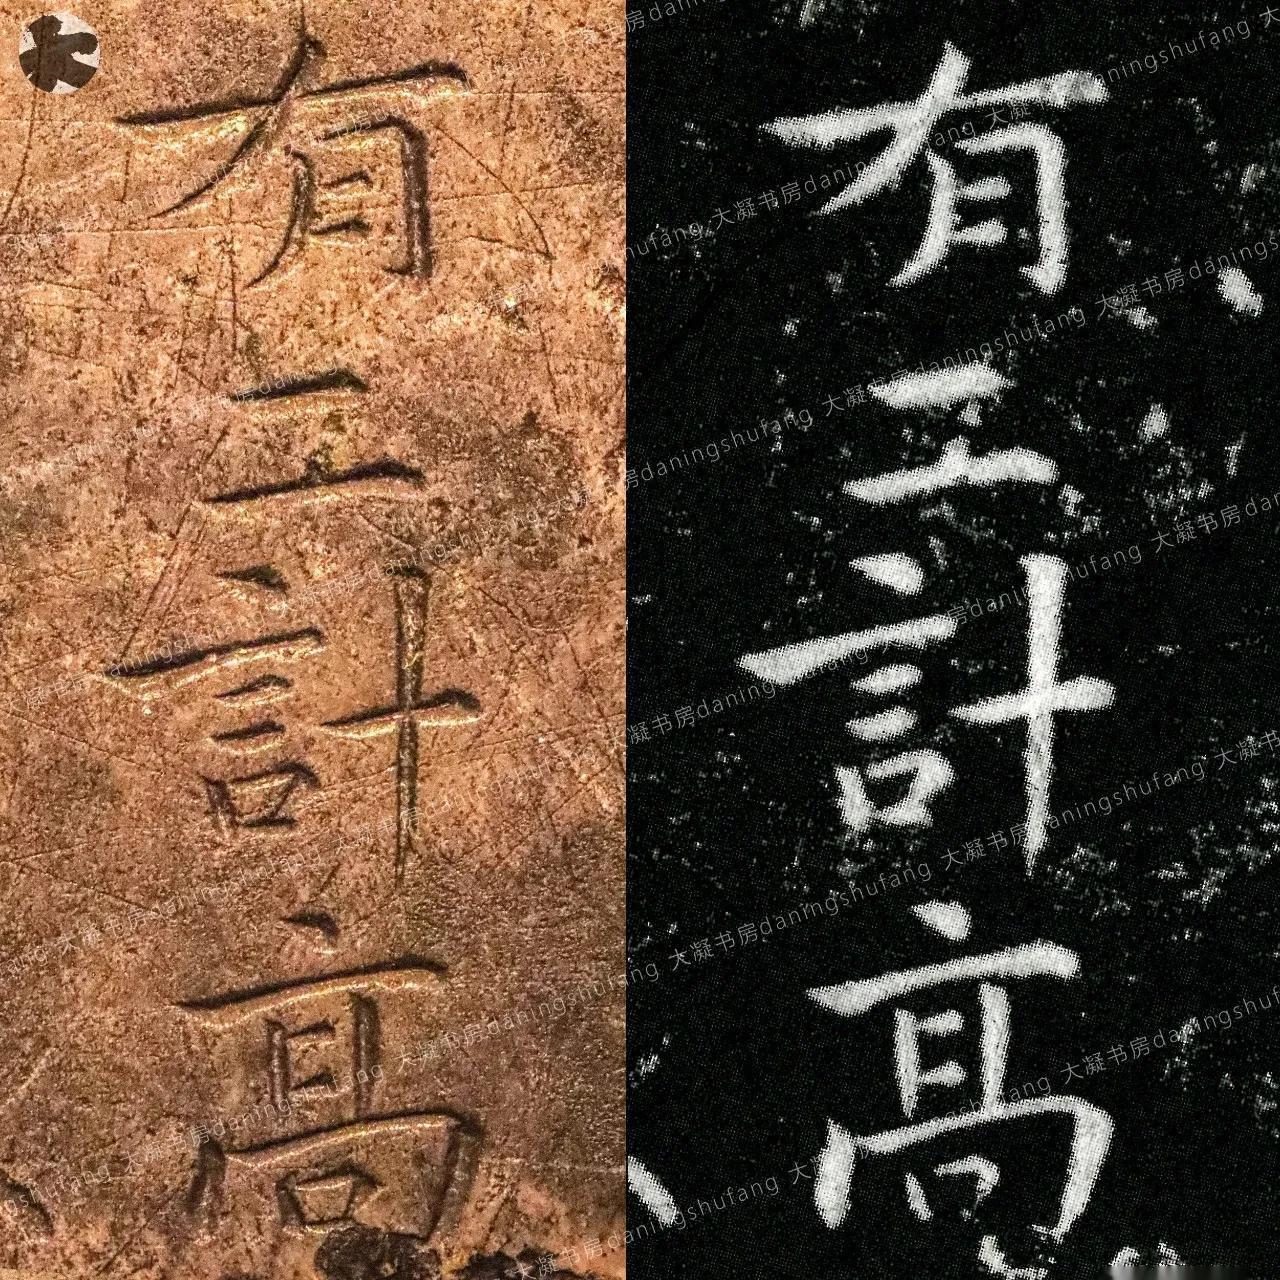 有工計高
有工計高
大凝书房daningshufang